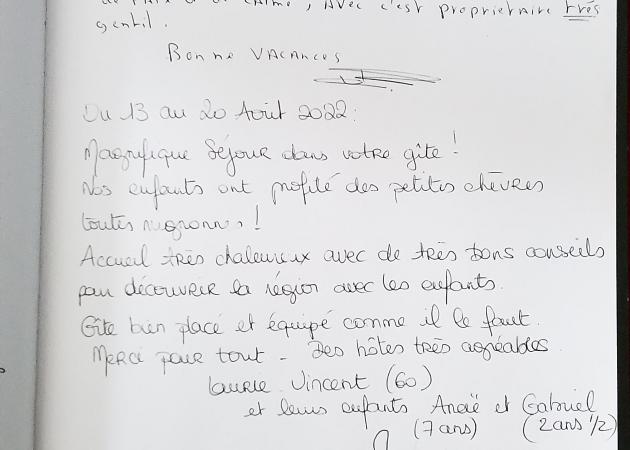 de paix et de calme, avec c'est propriétaire très
gentil.
Bonne VACANCES
Du 13 au 20 Août 2022:
Magnifique Séjour dans votre gîte !
Nos enfants ont profité des petites chèvres
toutes mignonnes !
Accueil très chaleureux avec de très bons conseils
pour découvrir la région avec les enfants.
Gîte bien placé et équipé comme il le faut.
Merci pour tout - Des hôtes très agréables
Laurie Vincent (60)
et leurs enfants Anaë et Gabriel
(7 ans) (2 ans 1/2)